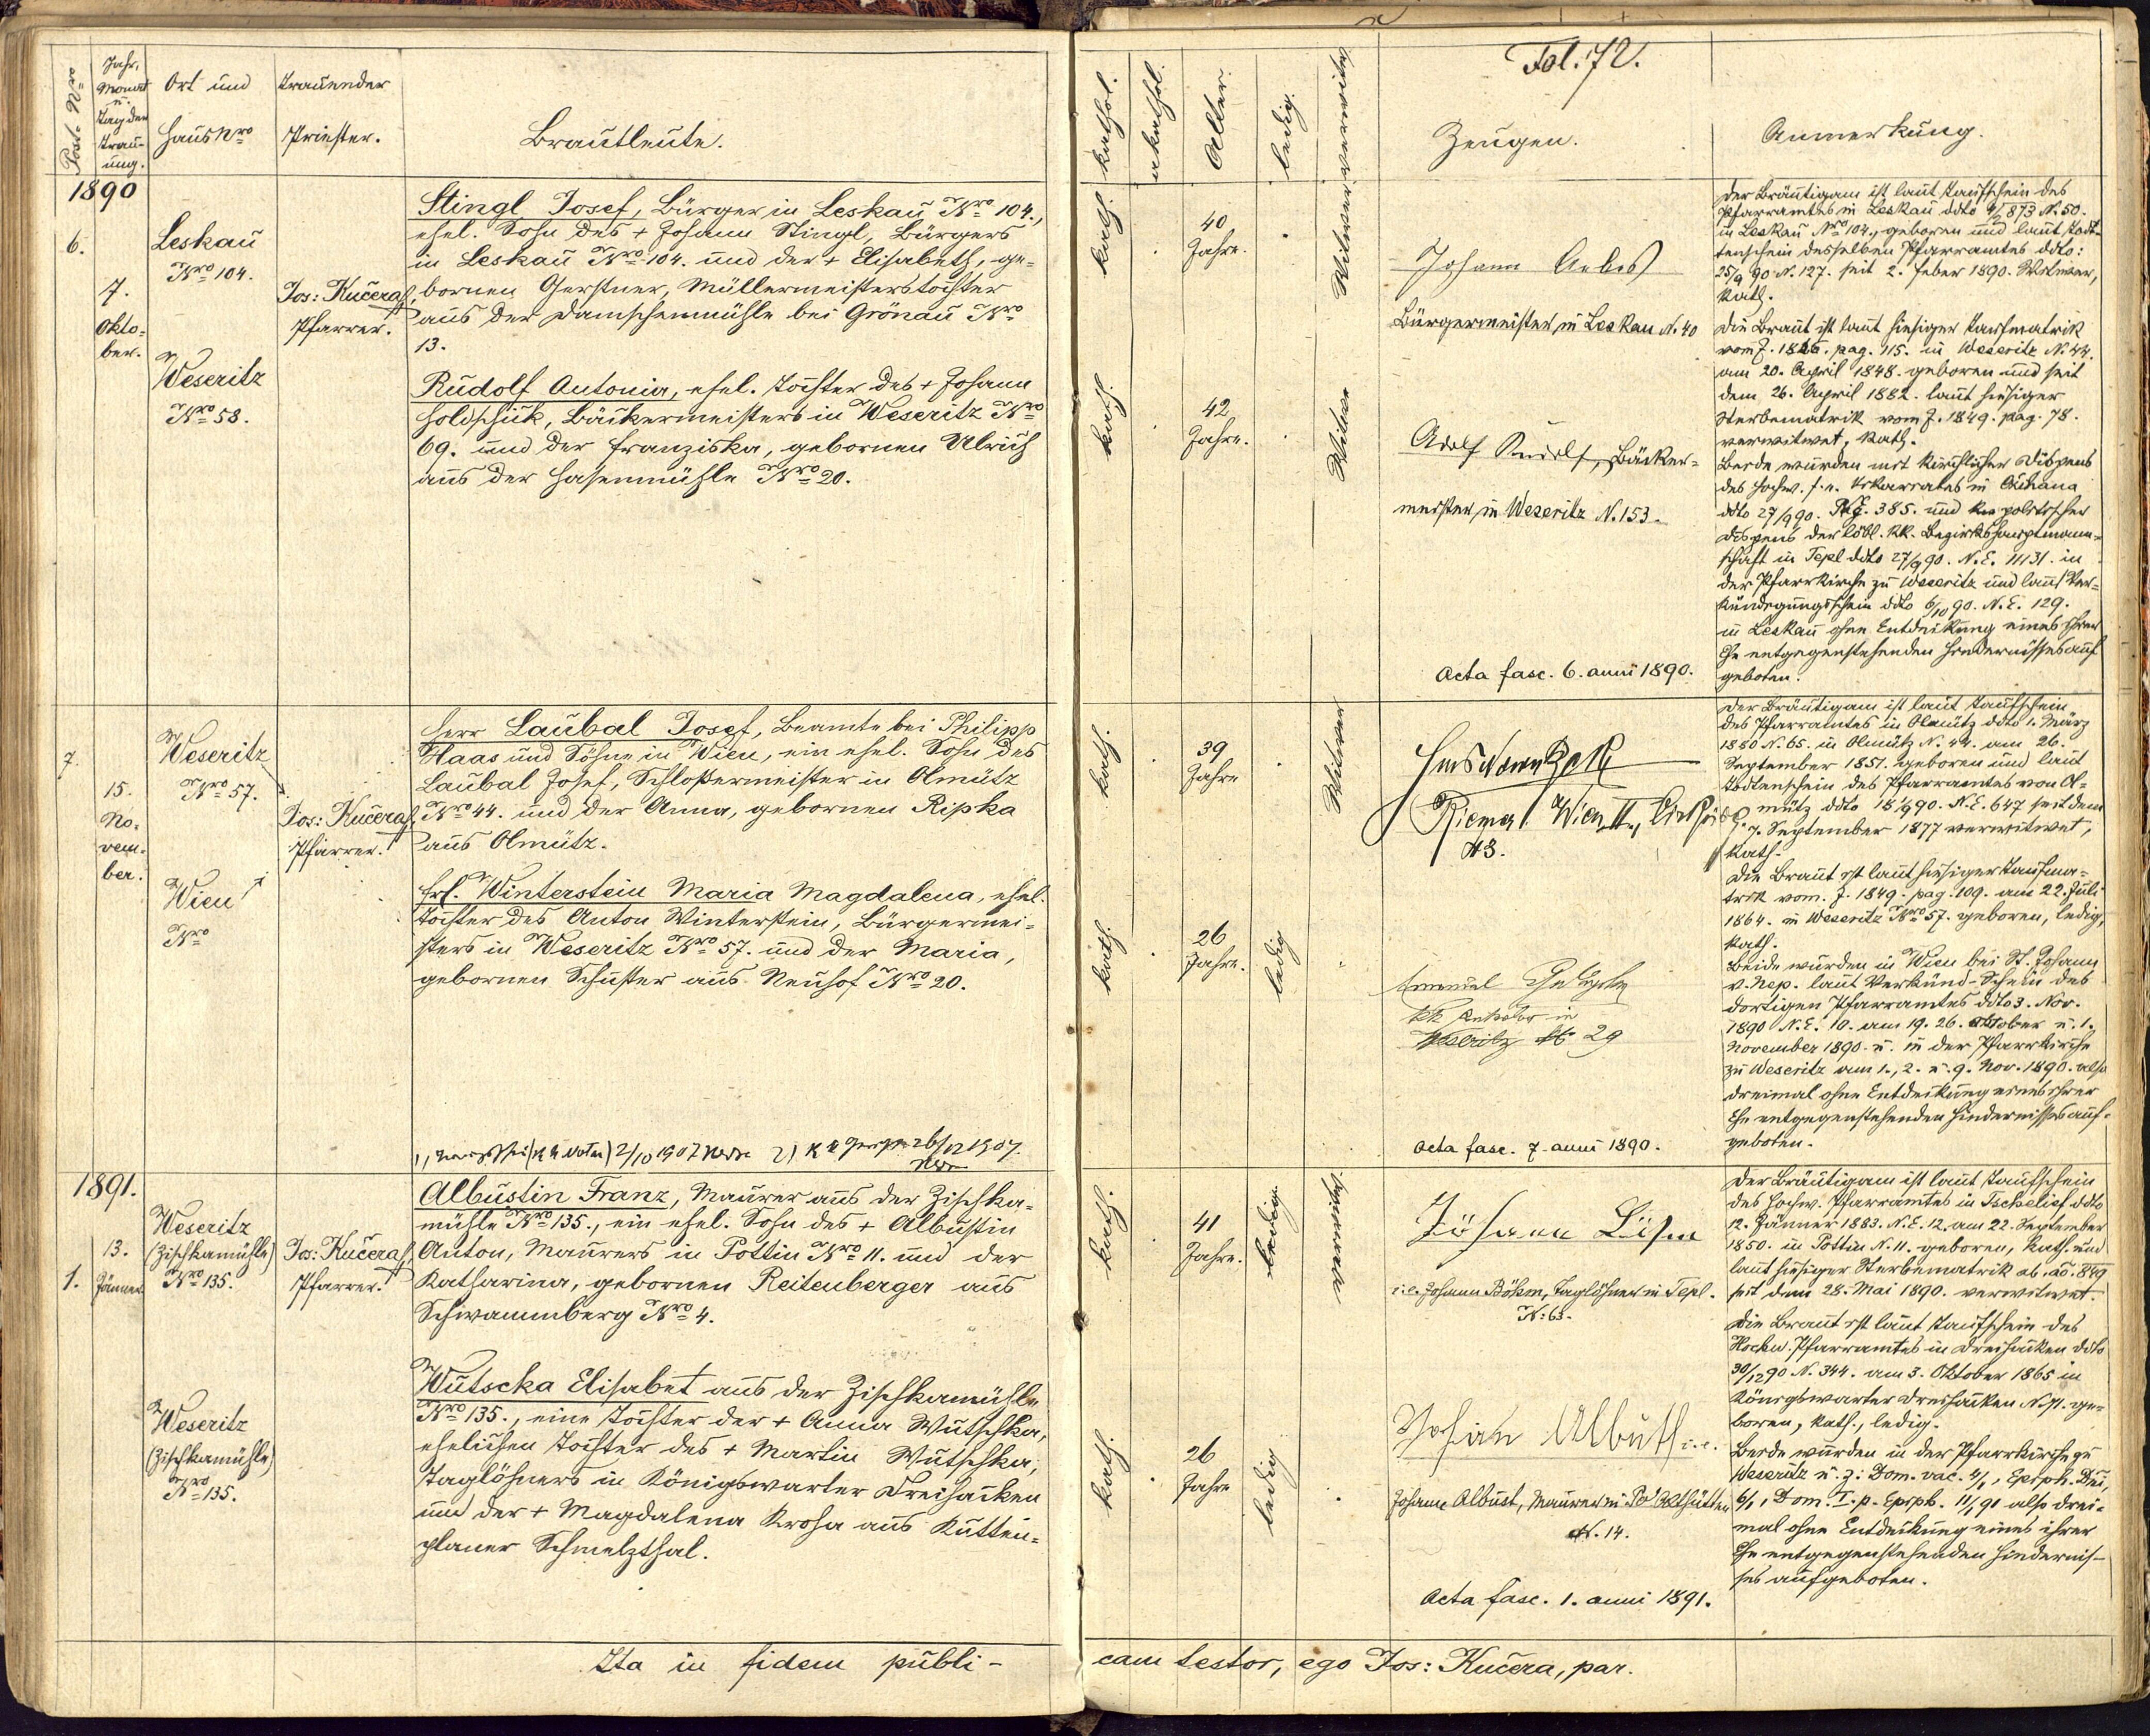 Post-Nro
Jahr,
Monat
u.
Tag der
Trau-
ung.
Ort und
Haus Nro
Trauender
Priester.
Brautleute.
1890
6.
7.
Okto-
ber.
Leskau
Nro 104.
Weseritz
Nro 58.
Jos: Kučera,
Pfarrer.
Stingl Josef, Bürger in Leskau Nro 104.,
ehel. Sohn des + Johann Stingl, Bürgers
in Leskau Nro 104. und der + Elisabeth, ge-
bornen Gerstner, Müllermeisterstochter
aus der Damschenmühle bei Grönau Nro
13.
Rudolf Antonia, ehel. Tochter des + Johann
Holdschick, Bäckermeisters in Weseritz Nro
69. und der Franziska, gebornen Ulrich
aus der Hasenmühle Nro 20.
7.
15.
No-
vem-
ber.
Weseritz
Nro 57.
Wien
Nro
Jos: Kučera,
Pfarrer.
Herr Laubal Josef, Beamte bei Philipp
Haas und Söhne in Wien, ein ehel. Sohn des
Laubal Josef, Schloßermeister in Olmütz
Nro 44. und der Anna, gebornen Ripka
aus Olmütz.
Frl. Winterstein Maria Magdalena, ehel.
Tochter des Anton Winterstein, Bürgermei-
sters in Weseritz Nro 57. und der Maria,
gebornen Schuster aus Neuhof Nro 20.
2/10 1907 2) 26/12 1907.
1891.
1.
13.
Jänner
Weseritz
(Zischkamühle)
Nro 135.
Weseritz
(Zischkamühle)
Nro 135.
Jos: Kučera,
Pfarrer.
Albustin Franz, Maurer aus der Zischka-
mühle Nro 135., ein ehel. Sohn des + Albustin
Anton, Maurers in Pottin Nro 11. und der
Katharina, gebornen Reitenberger aus
Schwammberg Nro 4.
Wutscka Elisabet aus der Zischkamühle
Nro 135., eine Tochter der + Anna Wutschka,
ehelichen Tochter des + Martin Wutschka,
Taglöhners in Königswarter Dreihacken
und der + Magdalena Krosa aus Kutten-
planer Schmelzthal.
Ita in fidem publi-
Fol. 72.
kathol.
akathol.
Alter.
ledig.
verwitw.
Zeugen.
Anmerkung.
kath.
40
Jahre.
Witwer
Johann
Bürgermeister in Leskau N. 40
kath.
42
Jahre.
Witwe
Adolf Rudolf, Bäcker-
meister in Weseritz N. 153.
Acta fasc. 6. anni 1890.
Der Bräutigam ist laut Taufschein des
Pfarramtes in Leskau ddto 873 N. 50.
in Leskau Nro 104., geboren und laut Todt-
tenschein desselben Pfarramtes ddto:
25/9 90 N. 127. seit 2. Feber 1890. Witwer,
kath.
Die Braut ist laut hiesiger Taufmatrik
vom J. pag. 115. in Weseritz N. 44.
am 20. April 1848. geboren und seit
dem 26. April 1882. laut hiesiger
Sterbematrik vom J. 1849. pag. 78.
verwitwet, kath.
Beide wurden mit kirchlicher Dispens
des hochw. f.e. Vikariates in
ddto 27/9 90. 385. und politischer
Dispens der löbl. kk. Bezirkshauptmann-
schaft in Tepl ddto 27/9 90. N.E. 11131. in
der Pfarrkirche zu Weseritz und laut Ver-
kündigungsschein ddto 6/10 90. N.E. 129.
in Leskau ohne Entdeckung eines ihrer
Ehe entgegenstehenden Hindernisses auf
geboten.
kath.
39
Jahre
Witwer
Riemer Wien II.,
43.
kath.
26
Jahre.
ledig
kk in
Weseritz No 29
Acta fasc. 7 anni 1890.
Der Bräutigam ist laut Taufschein
des Pfarramtes in Olmütz ddto 1. März
1880 N. 65. in Olmütz N. 44. am 26.
September 1851. geboren und laut
Todtenschein des Pfarramtes von Ol-
mütz ddto 18/9 90. N.E. 647 seit dem
7. September 1877 verwitwet,
kath.
Die Braut ist laut hiesiger Taufma-
trik vom J. 1849. pag. 109. am 22. Juli
1864. in Weseritz Nro 57. geboren, ledig,
kath.
Beide wurden in Wien bei St. Johann
v. Nep. laut Verkünd-Schein des
dortigen Pfarramtes ddto 3. Nov.
1890 N.E. 10. am 19. 26. Oktober u. 1.
November 1890. u. in der Pfarrkirche
zu Weseritz am 1., 2. u. 9. Nov. 1890. also
dreimal ohne Entdeckung eines ihrer
Ehe entgegenstehenden Hindernisses auf-
geboten.
kath.
41
Jahre.
ledig.
verwitw.
Johann Böhm
i.e. Johann Böhm, Taglöhner in Tepl.
N: 63.
kath.
26
Jahre
ledig
Johan Albust i.e.
Johann Albust, Maurer in Althütten
N. 14.
Acta fasc. 1. anni 1891.
Der Bräutigam ist laut Taufschein
des hochw. Pfarramtes in Tschelief ddto
12. Jänner 1883. N.E. 12. am 22. September
1850. in Pottin N. 11. geboren, kath. und
laut hiesiger Sterbematrik ab ao. 849
seit dem 28. Mai 1890. verwitwet.
Die Braut ist laut Taufschein des
Hochw. Pfarramtes in Dreihacken ddto
30/12 90 N. 344. am 3. Oktober 1865 in
Königswarter Dreihacken N. 71. ge-
boren, kath., ledig.
Beide wurden in der Pfarrkirche zu
Weseritz u. z: Dom. vac. 4/1, Epiph. Dni,
6/1, Dom. I. p. Epiph. 11/1 91 also drei-
mal ohne Entdeckung eines ihrer
Ehe entgegenstehenden Hindernis-
ses aufgeboten.
cam testor, ego Jos: Kučera, par.